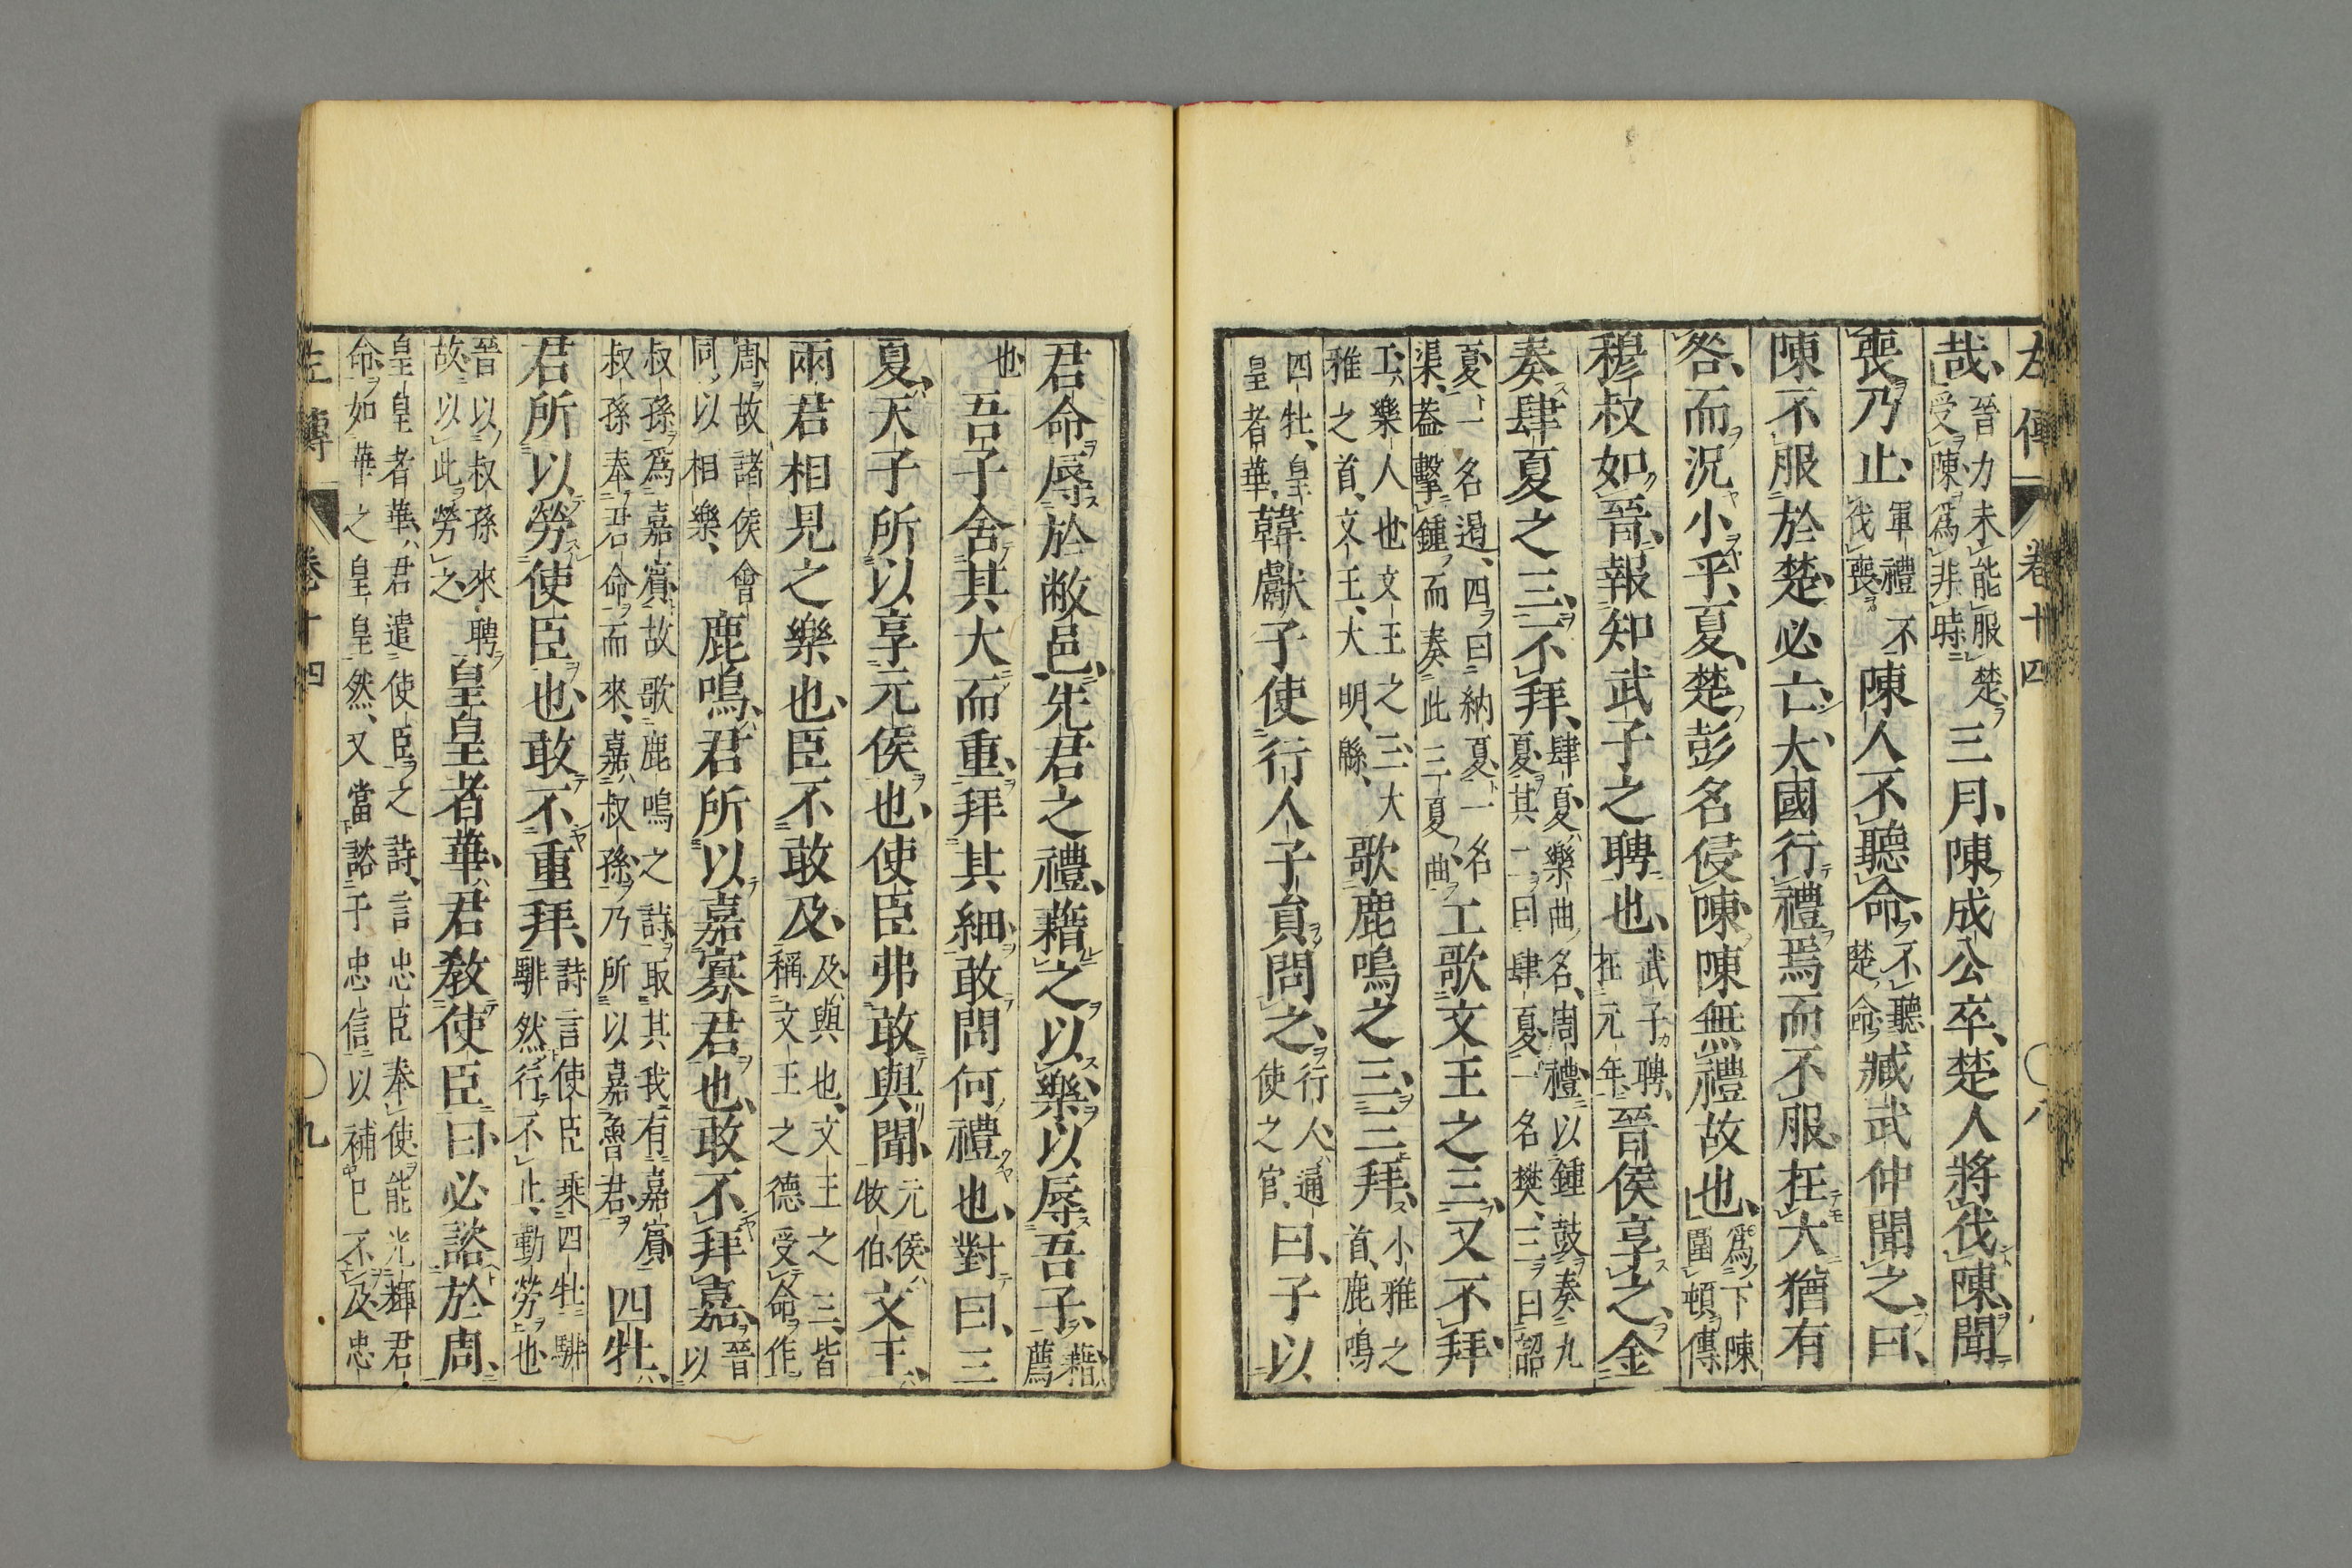 左傳 卷十四 八
哉、晉力未能服楚、受陳爲非時三月、陳成公卒、楚人將伐陳、聞
喪乃止、軍禮不伐喪陳人不聽命、不聽楚命臧武仲聞之、曰、
陳不服於楚、必亡、大國行禮焉而不服、在大猶有
咎、而況小乎、夏、楚彭名侵陳、陳無禮故也、爲下陳圍頓傳
穆叔如晉、報知武子之聘也、武子聘、在元年晉侯享之、金
奏肆夏之三、不拜、肆夏、樂曲名、周禮、以鍾鼓奏九夏、其二曰肆夏、一名樊、三曰韶
夏、一名遏、四曰納夏、一名渠、葢擊鍾而奏此三夏曲工歌文王之三、又不拜、
工、樂人也文王之三、大雅之首、文王、大明、緜、歌鹿鳴之三、三拜、小雅之首、鹿鳴
四牡、皇皇者華、韓獻子使行人子員問之、行人、通使之官、曰、子以
君命辱於敝邑、先君之禮、藉之以樂、以辱吾子、藉、薦
也吾子舍其大、而重拜其細、敢問何禮也、對曰、三
夏、天子所以享元侯也、使臣弗敢與聞、元侯牧伯文王、
兩君相見之樂也、臣不敢及、及、與也、文王之三、皆稱文王之德受命作
周、故諸侯會同、以相樂、鹿鳴、君所以嘉寡君也、敢不拜嘉、晉以
叔孫爲嘉賓、故歌鹿鳴之詩、取其我有嘉賓、叔孫奉君命而來、嘉叔孫、乃所以嘉魯君、四牡、
君所以勞使臣也、敢不重拜、詩言使臣乘四牡騑騑然、行不止、勤勞也
晉以叔孫來聘、故以此勞之、皇皇者華、君敎使臣、曰、必諮於周、
皇皇者華、君遣使臣之詩、言忠臣奉使能光輝君命、如華之皇皇然、又當諮于忠信以補己不及、忠
左傳 卷十四 九